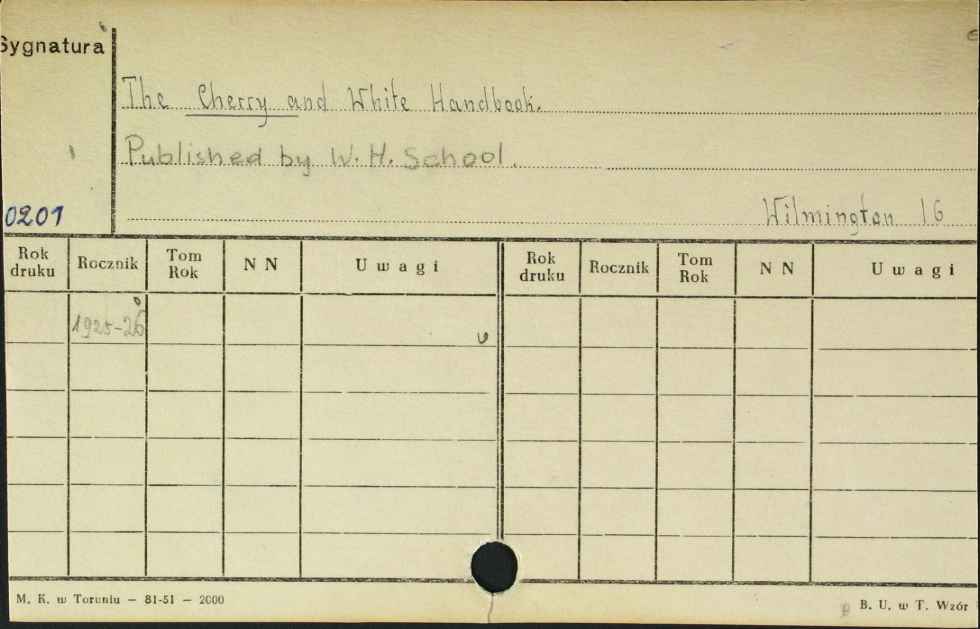 Sygnatura
The Cherry and White Handbook.
Published by W. H. School.
0201
Wilmington 16
Rok druku Rocznik Tom Rok N N Uwagi Rok druku Rocznik Tom Rok N N Uwagi
1925-26
M. K. w Toruniu — 81-51 — 2000
B. U. w T. Wzór